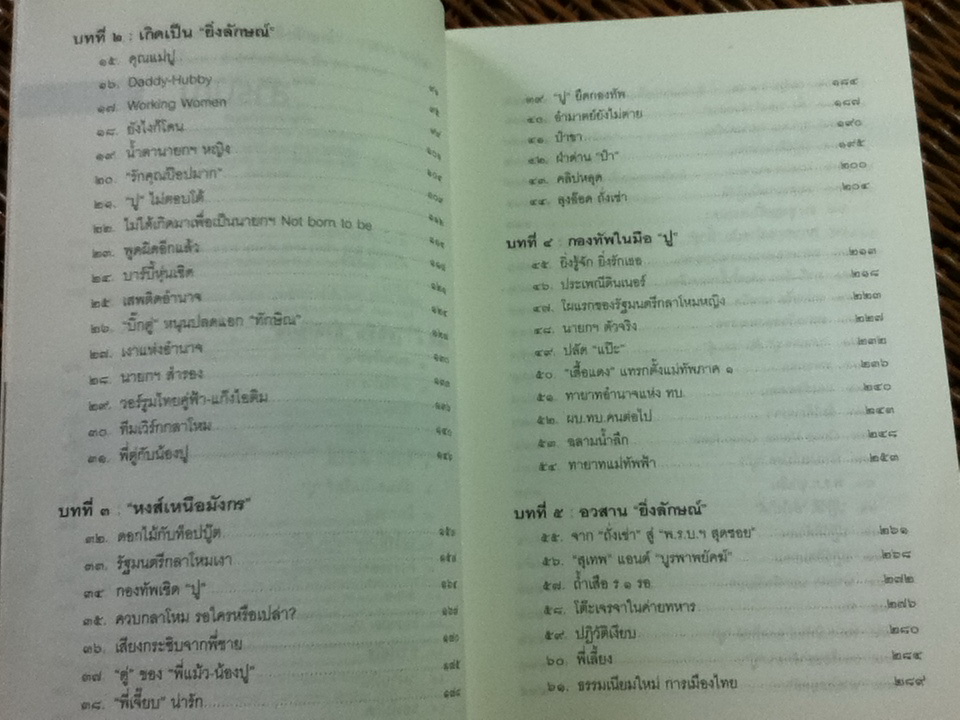 บทที่ ๒ : เกิดเป็น "ยิ่งลักษณ์"
๑๕. คุณแม่ปู
๑๖. Daddy-Hubby ๙๑
๑๗. Working Women
๑๘. ยังไงก็โดน
๑๙. น้ำตานายกฯ หญิง
๒๐. "รักคุณป๊อปมาก"
๒๑. "ปู" ไม่ตอบโต้
๒๒. ไม่ได้เกิดมาเพื่อเป็นนายกฯ Not born to be
๒๓. พูดผิดอีกแล้ว
๒๔. บาร์บี้หุ่นเชิด
๒๕. เสพติดอำนาจ
๒๖. "บิ๊กตู่" หนุนปลดแอก "ทักษิณ"
๒๗. เงาแห่งอำนาจ
๒๘. นายกฯ สำรอง
๒๙. วอร์รูมไทยคู่ฟ้า-แก๊งไอติม
๓๐. ทีมเวิร์กกลาโหม
๓๑. พี่ตู่กับน้องปู
บทที่ ๓ : "หงส์เหนือมังกร"
๓๒. ดอกไม้กับท็อปบู๊ต
๓๓. รัฐมนตรีกลาโหมเงา
๓๔. กองทัพเชิด "ปู"
๓๕. ควบกลาโหม รอใครหรือเปล่า?
๓๖. เสียงกระซิบจากพี่ชาย
๓๗. "ตู่" ของ "พี่แม้ว-น้องปู"
๓๘. "พี่เจี๊ยบ" น่ารัก
๓๙. "ปู" ยึดกองทัพ ๑๘๔
๔๐. อำมาตย์ยังไม่ตาย ๑๘๗
๔๑. ป๋าขา ๑๙๐
๔๒. ฝ่าด่าน "ป๋า" ๑๙๕
๔๓. คลิปหลุด ๒๐๐
๔๔. ลุงอ๊อด ถั่งเช่า ๒๐๔
บทที่ ๔ : กองทัพในมือ "ปู"
๔๕. ยิ่งรู้จัก ยิ่งรักเธอ ๒๑๓
๔๖. ประเพณีดินเนอร์ ๒๑๘
๔๗. โผแรกของรัฐมนตรีกลาโหมหญิง ๒๒๓
๔๘. นายกฯ ตัวจริง ๒๒๗
๔๙. ปลัด "แป๊ะ" ๒๓๒
๕๐. "เสื้อแดง" แทรกตั้งแม่ทัพภาค ๑ ๒๓๖
๕๑. ทายาทอำนาจแห่ง ทบ. ๒๔๐
๕๒. ผบ.ทบ.คนต่อไป ๒๔๓
๕๓. ฉลามน้ำลึก ๒๔๘
๕๔. ทายาทแม่ทัพฟ้า ๒๕๓
บทที่ ๕ : อวสาน "ยิ่งลักษณ์"
๕๕. จาก "ถั่งเช่า" สู่ "พ.ร.บ.ฯ สุดซอย" ๒๖๑
๕๖. "สุเทพ" แอนด์ "บูรพาพยัคฆ์" ๒๖๘
๕๗. ถ้ำเสือ ร ๑ รอ. ๒๗๒
๕๘. โต๊ะเจรจาในค่ายทหาร ๒๗๖
๕๙. ปฏิวัติเงียบ ๒๘๐
๖๐. พี่เลี้ยง ๒๘๔
๖๑. ธรรมเนียมใหม่ การเมืองไทย ๒๘๙